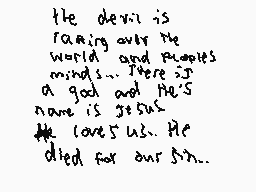 the devil is
taking over the
world and peoples
minds... There is
a god and He's
name is Jesus
He loves us.. He
died for our sin...